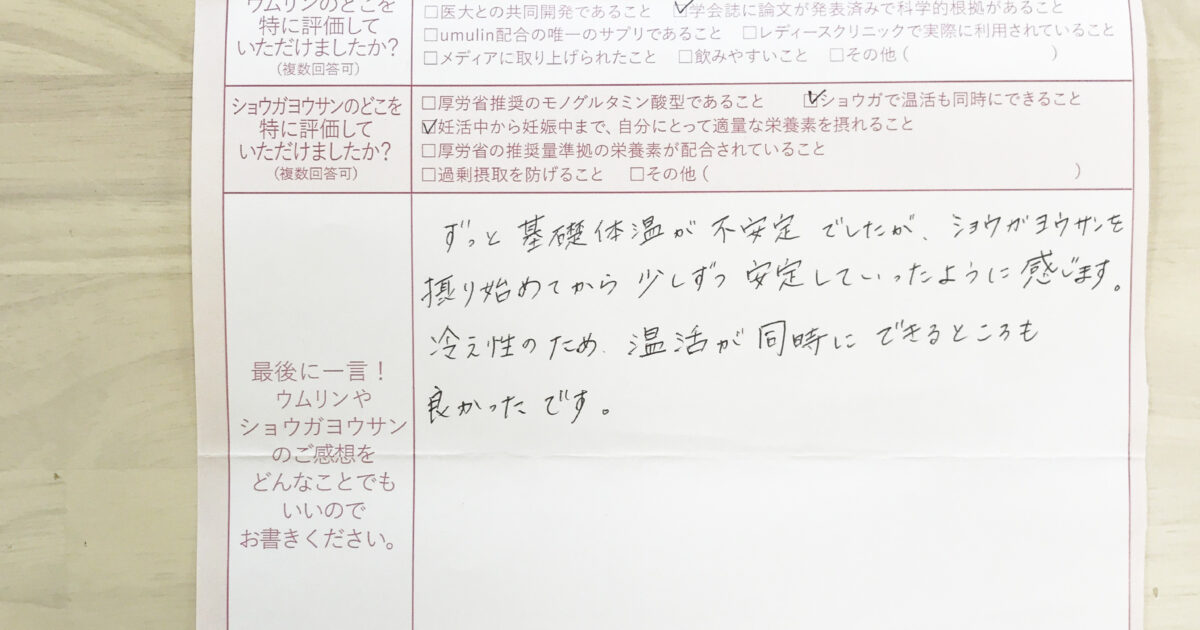 ウムリンのどこを
特に評価して
いただけましたか?
(複数回答可)
□医大との共同開発であること ☑学会誌に論文が発表済みで科学的根拠があること
□umulin配合の唯一のサプリであること □レディースクリニックで実際に利用されていること
□メディアに取り上げられたこと □飲みやすいこと □その他( )
ショウガヨウサンのどこを
特に評価して
いただけましたか?
(複数回答可)
□厚労省推奨のモノグルタミン酸型であること ☑ショウガで温活も同時にできること
☑妊活中から妊娠中まで、自分にとって適量な栄養素を摂れること
□厚労省の推奨量準拠の栄養素が配合されていること
□過剰摂取を防げること □その他( )
最後に一言!
ウムリンや
ショウガヨウサン
のご感想を
どんなことでも
いいので
お書きください。
ずっと基礎体温が不安定でしたが、ショウガヨウサンを
摂り始めてから少しずつ安定していったように感じます。
冷え性のため、温活が同時にできるところも
良かったです。